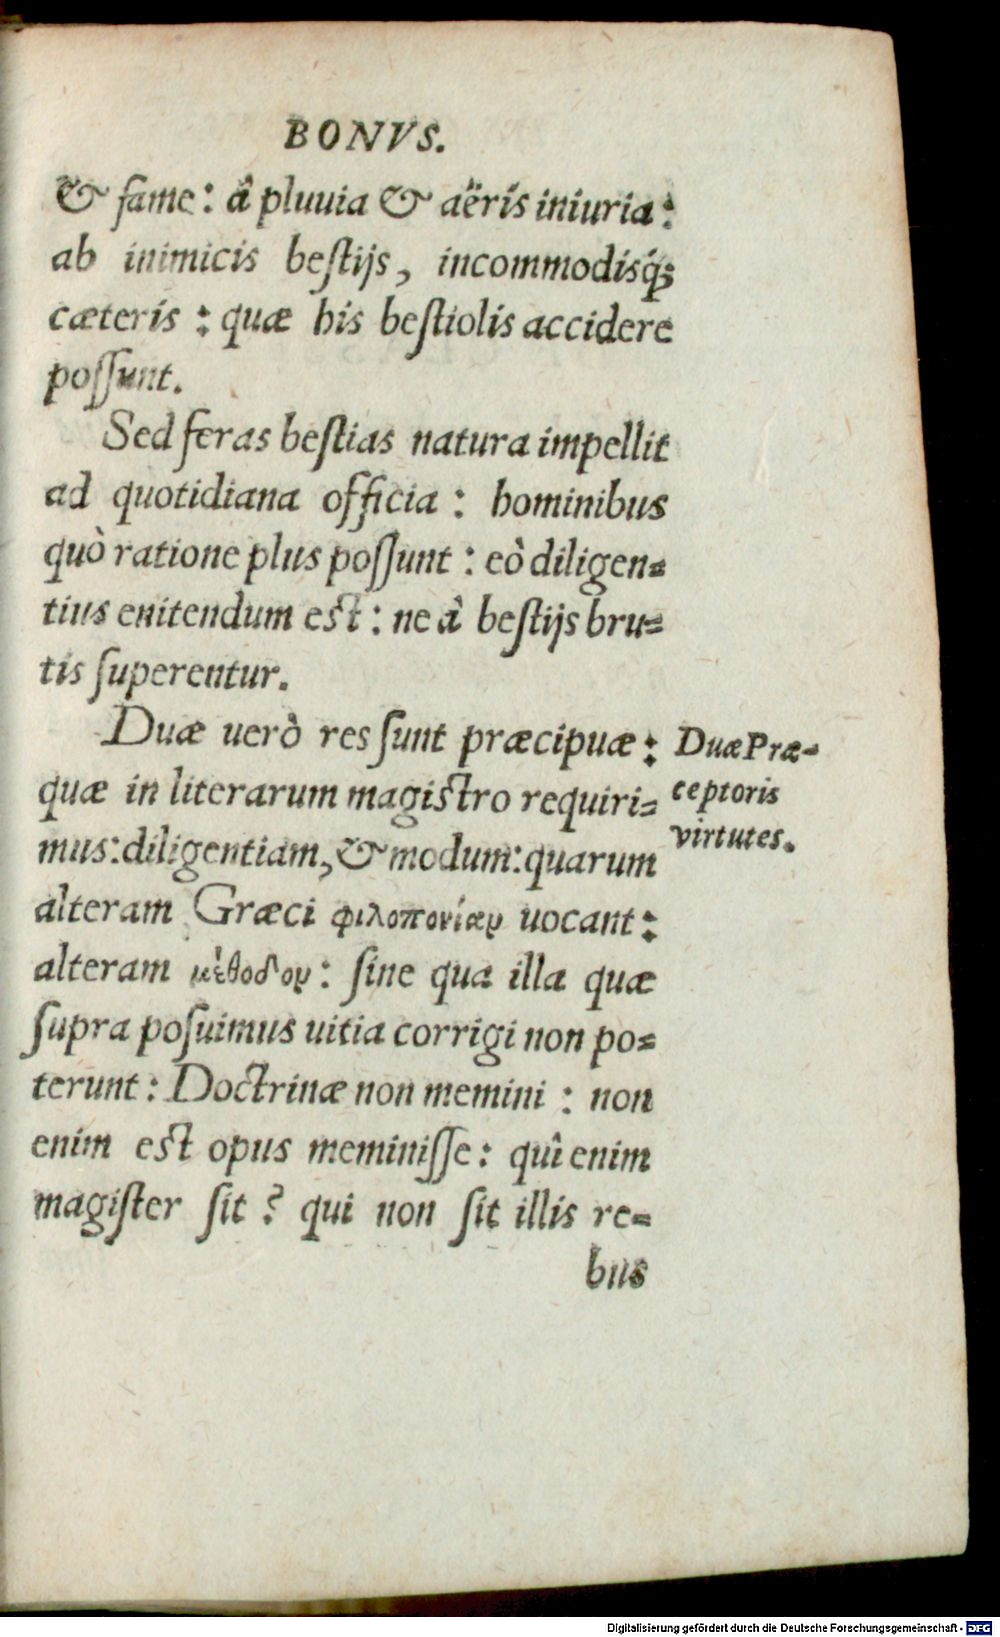 BONVS.
& fame: â pluuia & aëris iniuria:
ab inimicis bestijs, incommodisq́;
cæteris: quæ his bestiolis accidere
possunt.
Sed feras bestias natura impellit
ad quotidiana officia: hominibus
quò ratione plus possunt: eò diligen=
tius enitendum est: ne â bestijs bru=
tis superentur.
Duæ uerò res sunt præcipuæ:
quæ in literarum magistro requiri=
mus: diligentiam, & modum: quarum
alteram Græci φιλοπονίαν uocant:
alteram μέθοδον: sine qua illa quæ
supra posuimus uitia corrigi non po=
terunt: Doctrinæ non memini: non
enim est opus meminisse: quî enim
magister sit? qui non sit illis re=
bus
Duæ Præ=
ceptoris
virtutes.
Digitalisierung gefördert durch die Deutsche Forschungsgemeinschaft - DFG